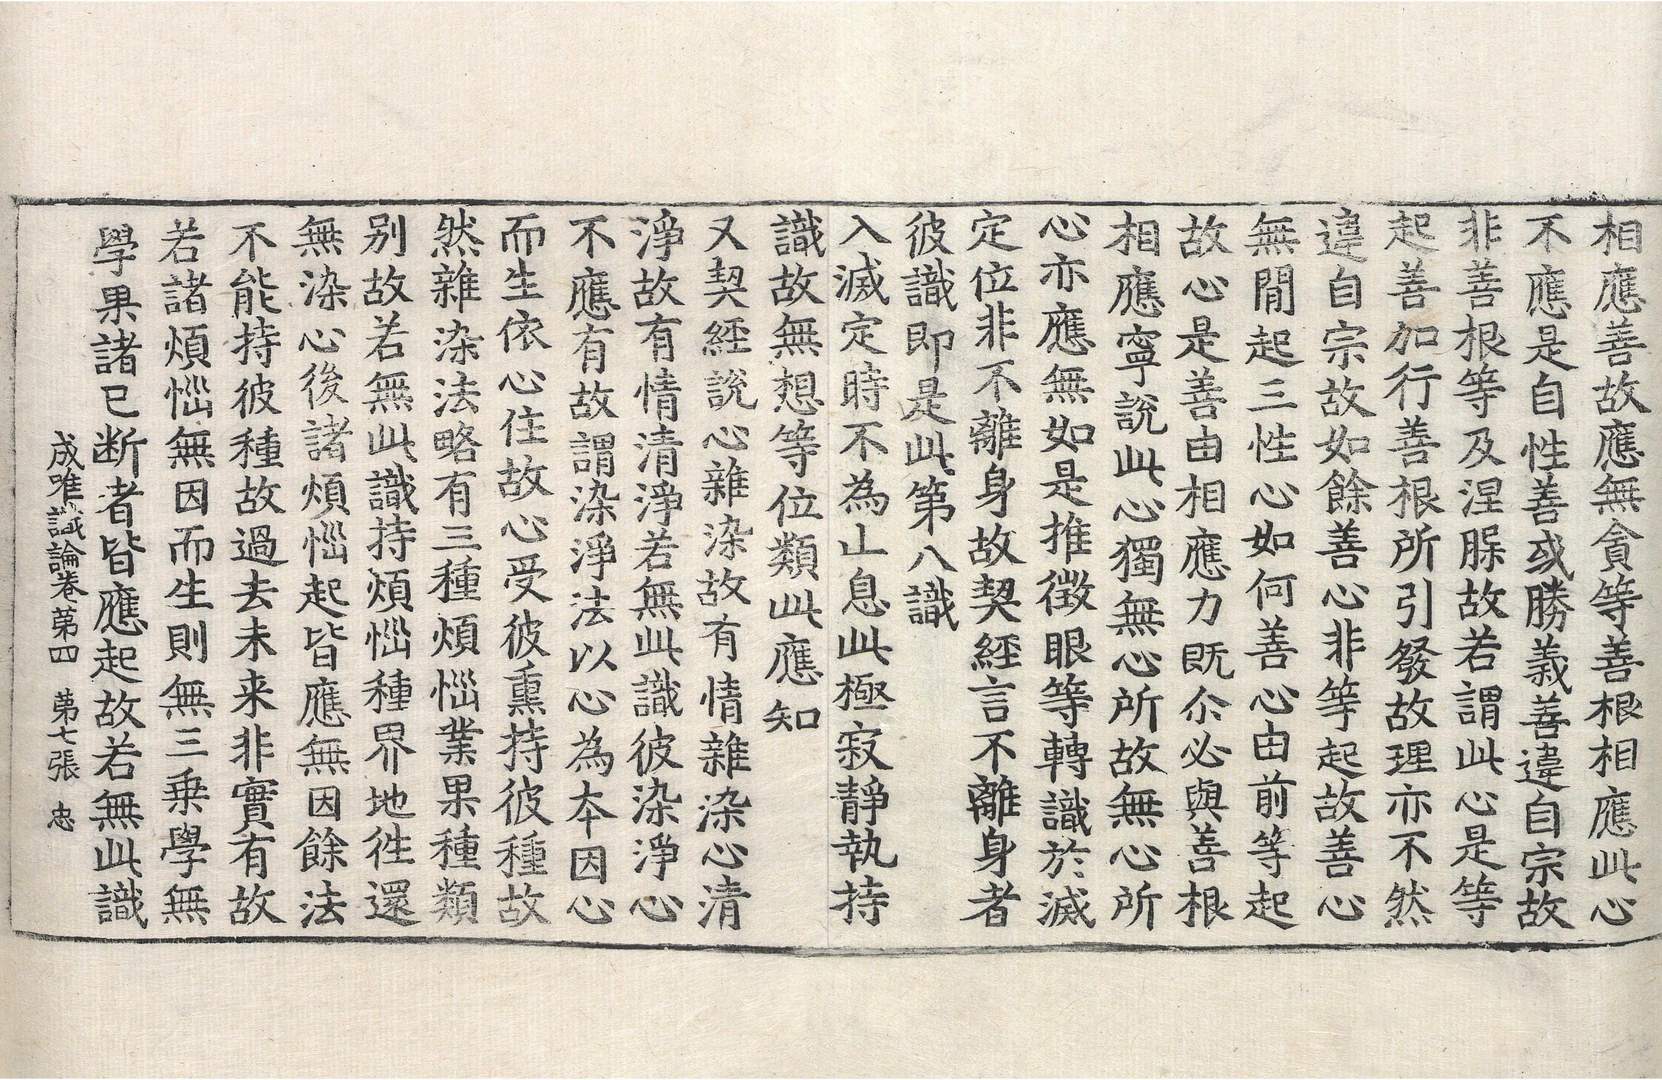 相應善故應無貪等善根相應此心
不應是自性善或勝義善違自宗故
非善根等及涅槃故若謂此心是等
起善加行善根所引發故理亦不然
違自宗故如餘善心非等起故善心
無間起三性心如何善心由前等起
故心是善由相應力既尒必與善根
相應寧說此心獨無心所故無心所
心亦應無如是推徵眼等轉識於滅
定位非不離身故契經言不離身者
彼識即是此第八識
入滅定時不為止息此極寂靜執持
識故無想等位類此應知
又契經說心雜染故有情雜染心清
淨故有情清淨若無此識彼染淨心
不應有故謂染淨法以心為本因心
而生依心住故心受彼熏持彼種故
然雜染法略有三種煩惱業果種類
別故若無此識持煩惱種界地徃還
無染心後諸煩惱起皆應無因餘法
不能持彼種故過去未来非實有故
若諸煩惱無因而生則無三乗學無
學果諸已断者皆應起故若無此識
成唯識論卷苐四 苐七張 忠